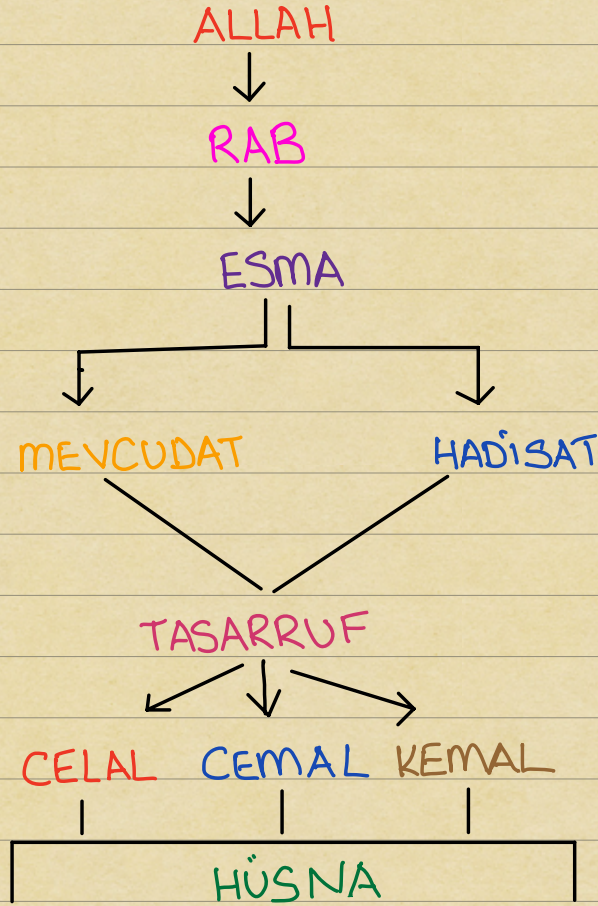 ALLAH
RAB
ESMA
MEVCUDAT HADİSAT
TASARRUF
CELAL CEMAL KEMAL
HÜSNA